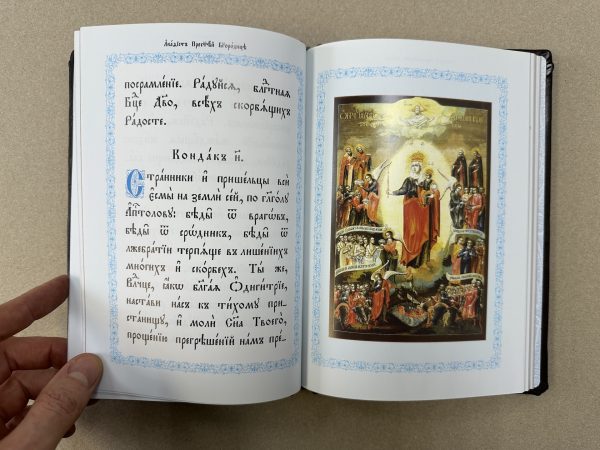 Акаѳїстъ Прест҃ѣй Бг҃ородицѣ
посрамле́нїе. Ра́дуйся, блг҃тная
Бц҃е Дв҃о, всѣ́хъ скорбя́щихъ
Радосте.
Конда́къ и҃.
Стра́нники и҆ прише́льцы вси́
є҆смы̀ на землѝ се́й, по глг҃олу
А҆пⷭ҇толову: бѣды̀ ѿ враго́въ,
бѣды̀ ѿ сро́дникъ, бѣды̀ ѿ
лжебра́тїи терпя́ще въ лише́нїихъ
мно́гихъ и҆ ско́рбехъ. Ты́ же,
Влⷣчце, ꙗ҆́кѡ блг҃а́я Ѻ҆диги́трїе,
наста́ви на́съ къ ти́хому при-
ста́нищу, и҆ молѝ Сн҃а Твоего̀,
проще́нїю прегрѣше́нїй на́мъ пре-